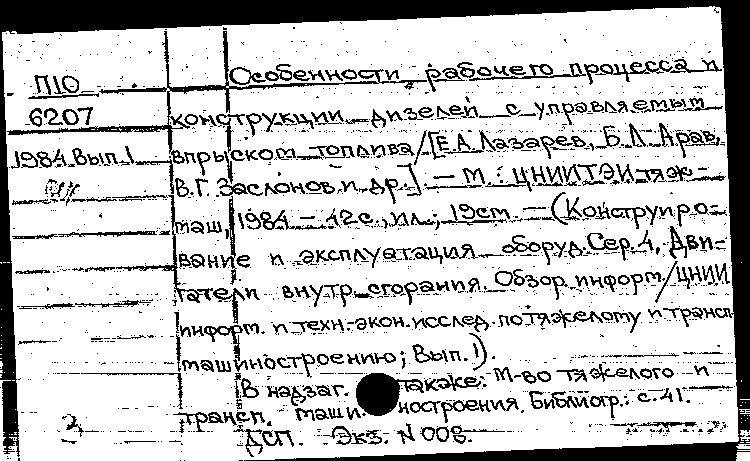 П10
6207
1984 Вып. 1
Особенности рабочего процесса и
конструкции дизелей с управляемым
впрыском топлива/[Е.А. Лазарев, Б.Л. Арав,
В.Г. Заслонов и др.] – М.: ЦНИИТЭИтяж-
маш, 1984 – 42с., ил.; 19см. – (Конструиро-
вание и эксплуатация оборуд. Сер. 4, Дви-
гатели внутр. сгорания. Обзор. информ./ЦНИИ
информ. и техн.-экон. исслед. по тяжелому и трансп.
машиностроению; Вып. 1).
В надзаг. также: М-во тяжелого и
трансп. машиностроения. Библиогр.: с. 41.
ДСП. Экз. N 008.
3